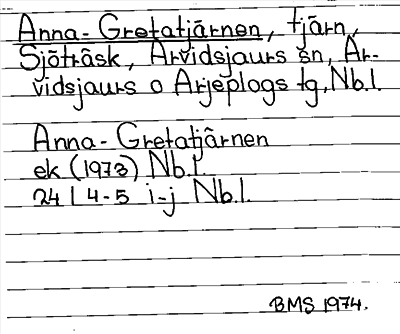 Anna-Gretatjärnen, tjärn,
Sjöträsk, Arvidsjaurs sn, Ar-
vidsjaurs o Arjeplogs tg, Nb.l.
Anna-Gretatjärnen
ek (1973) Nb.l.
24 I 4-5 i-j Nb.l.
BMS 1974.